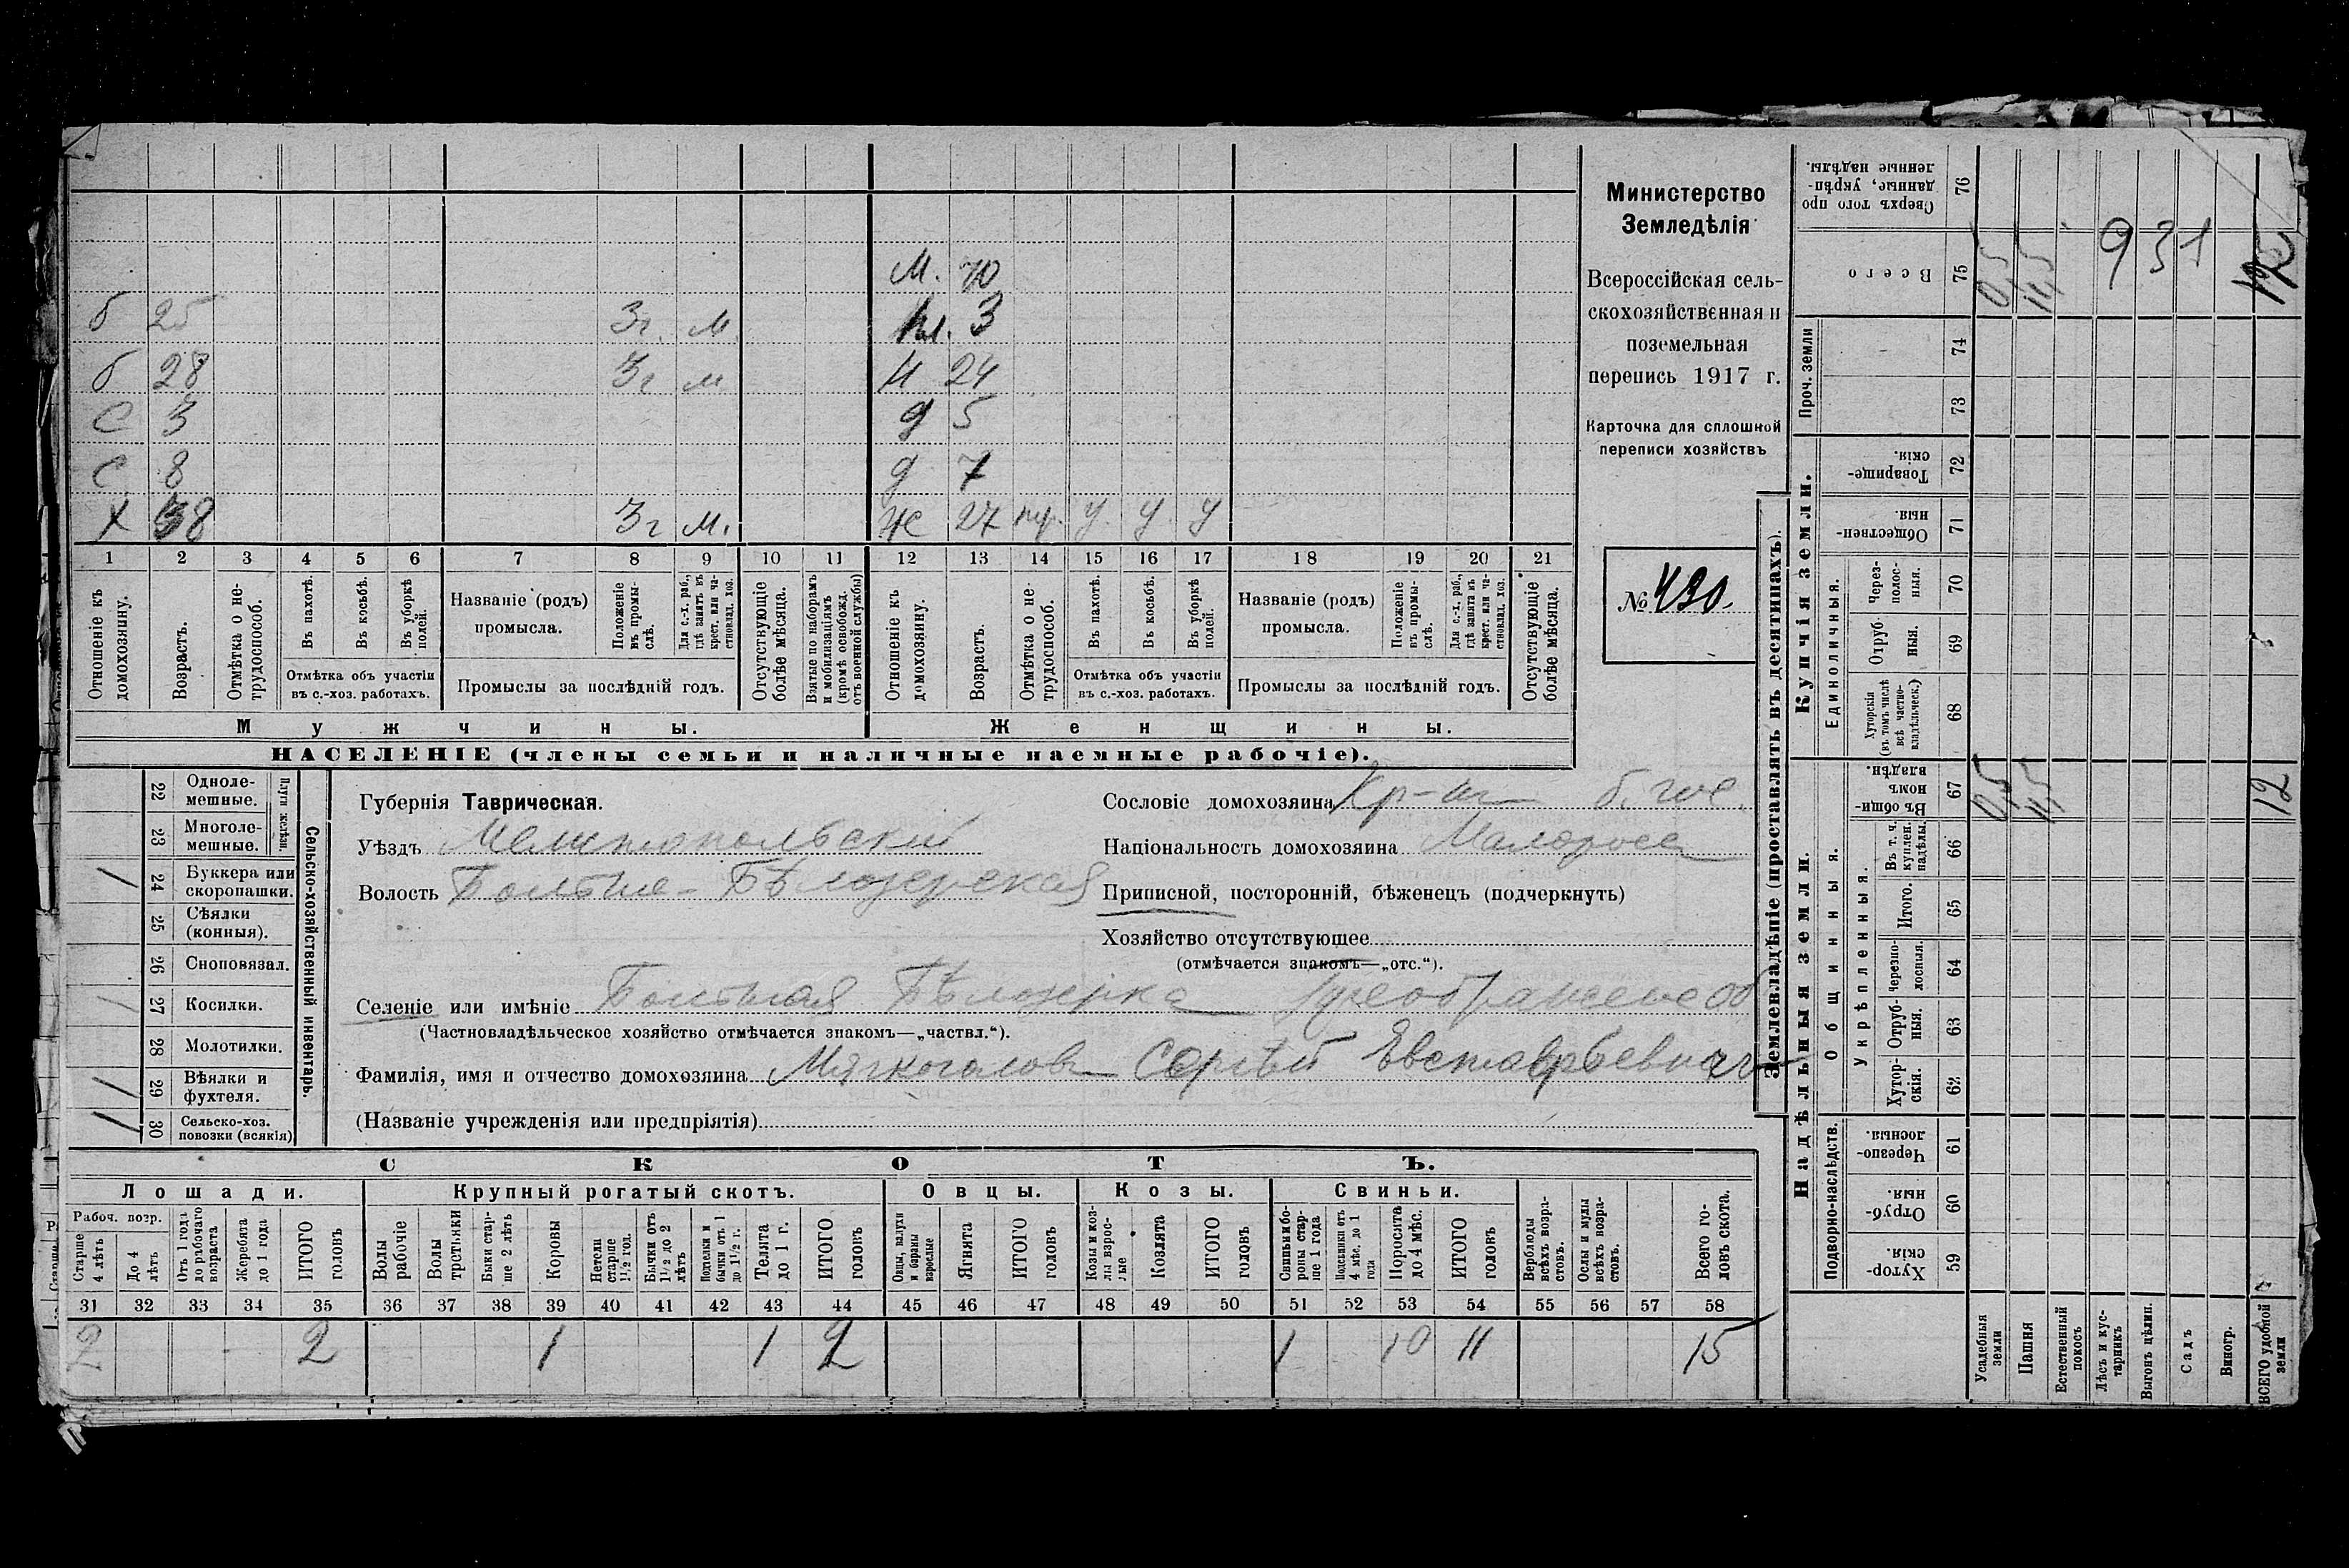 Министерство
Земледѣлія
Всероссійская сель-
скохозяйственная и
поземельная
перепись 1917 г.
Карточка для сплошной
переписи хозяйствъ
№ 490.
М. 70
б 25 Зг. м 3
б 28 Зг м 24
С 3 д 5
С 8 д 7
Х 38 Зг м. Ж 27 у у у
1 2 3 4 5 6 7 8 9 10 11 12 13 14 15 16 17 18 19 20 21
Отношеніе къ домохозяину.
Возрастъ.
Отмѣтка о не-трудоспособ.
Въ пахотѣ.
Въ косьбѣ.
Въ уборкѣ полей.
Отмѣтка объ участіи
въ с.-хоз. работахъ.
Названіе (родъ)
промысла.
Положеніе въ промы-слѣ.
Для с.-х. раб., гдѣ занятъ въ крест. или ча-стновлад. хоз.
Промыслы за послѣдній годъ.
Отсутствующіе болѣе мѣсяца.
Взятые по наборамъ и мобилизаціямъ (кромѣ освобожд. отъ военной службы)
Отношеніе къ домохозяину.
Возрастъ.
Отмѣтка о не-трудоспособ.
Въ пахотѣ.
Въ косьбѣ.
Въ уборкѣ полей.
Отмѣтка объ участіи
въ с.-хоз. работахъ.
Названіе (родъ)
промысла.
Положеніе въ промы-слѣ.
Для с.-х. раб., гдѣ занята въ крест. или ча-стновлад. хоз.
Промыслы за послѣдній годъ.
Отсутствующіе болѣе мѣсяца.
Мужчины. Женщины.
НАСЕЛЕНІЕ (члены семьи и наличные наемные рабочіе).
Сельско-хозяйственный инвентарь.
Плуги желѣзн.
22 Одноле-мешные.
23 Многоле-мешные.
/ 24 Буккера или скоропашки.
25 Сѣялки (конныя).
26 Сноповязал.
/ 27 Косилки.
28 Молотилки.
/ 29 Вѣялки и фухтеля.
/ 30 Сельско-хоз. повозки (всякія)
Губернія Таврическая.
Уѣздъ Мелитопольскій
Волость Больше-Бѣлозерская
Сословіе домохозяина Кр-нъ
Національность домохозяина Малороссъ
Приписной, посторонній, бѣженецъ (подчеркнуть)
Хозяйство отсутствующее
(отмѣчается знакомъ—„отс.“).
Селеніе или имѣніе Большая Бѣлозерка Преображенс об
(Частновладѣльческое хозяйство отмѣчается знакомъ—„частвл.“).
Фамилія, имя и отчество домохозяина Мягкоголовъ Сергѣй Евстафьевичъ
(Названіе учрежденія или предпріятія)
СКОТЪ.
Лошади. Крупный рогатый скотъ. Овцы. Козы. Свиньи.
Рабоч. возр.
Старше 4 лѣтъ
До 4 лѣтъ
Отъ 1 года до рабочаго возраста
Жеребята до 1 года
ИТОГО головъ
Волы рабочіе
Волы третьяки
Быки стар-ше 2 лѣтъ
Коровы
Нетели старше 1 1/2 год.
Бычки отъ 1 1/2 до 2 лѣтъ
Подтелки и бычки отъ 1 до 1 1/2 г.
Телята до 1 г.
ИТОГО головъ
Овцы, валухи и бараны взрослые
Ягнята
ИТОГО головъ
Козы и коз-лы взрос-лые
Козлята
ИТОГО головъ
Свиньи и бо-ровы стар-ше 1 года
Подсвинки отъ 4 мѣс. до 1 года
Поросята до 4 мѣс.
ИТОГО головъ
Верблюды всѣхъ возра-стовъ.
Ослы и мулы всѣхъ возра-стовъ.
Всего го-ловъ скота.
31 32 33 34 35 36 37 38 39 40 41 42 43 44 45 46 47 48 49 50 51 52 53 54 55 56 57 58
2 2 1 1 2 1 10 11 15
Землевладѣніе (проставлять въ десятинахъ).
Надѣльныя земли. Купчія земли. Проч. земли
Подворно-наслѣдств.
Общинныя.
Укрѣпленныя.
Единоличныя.
Хутор-скія. 59
Отруб-ныя. 60
Черезпо-лосныя. 61
Хутор-скія. 62
Отруб-ныя. 63
Черезпо-лосныя. 64
Итого. 65
Въ т. ч. куплен. надѣлы. 66
Въ общи-номъ владѣн. 67
Хуторскія (въ томъ числѣ всѣ частно-владѣльческ.) 68
Отруб-ныя. 69
Через-полос-ныя. 70
Обществен-ныя. 71
Товарище-скія. 72
73
74
Всего 75
Сверхъ того про-данные, укрѣп-ленные надѣлы. 76
Усадебныя земли 0,5 0,5
Пашня 11,5 11,5
Естественный покосъ
Лѣсъ и кус-тарникъ
Выгонъ цѣлин.
Садъ
Виногр.
ВСЕГО удобной земли 12 12
931